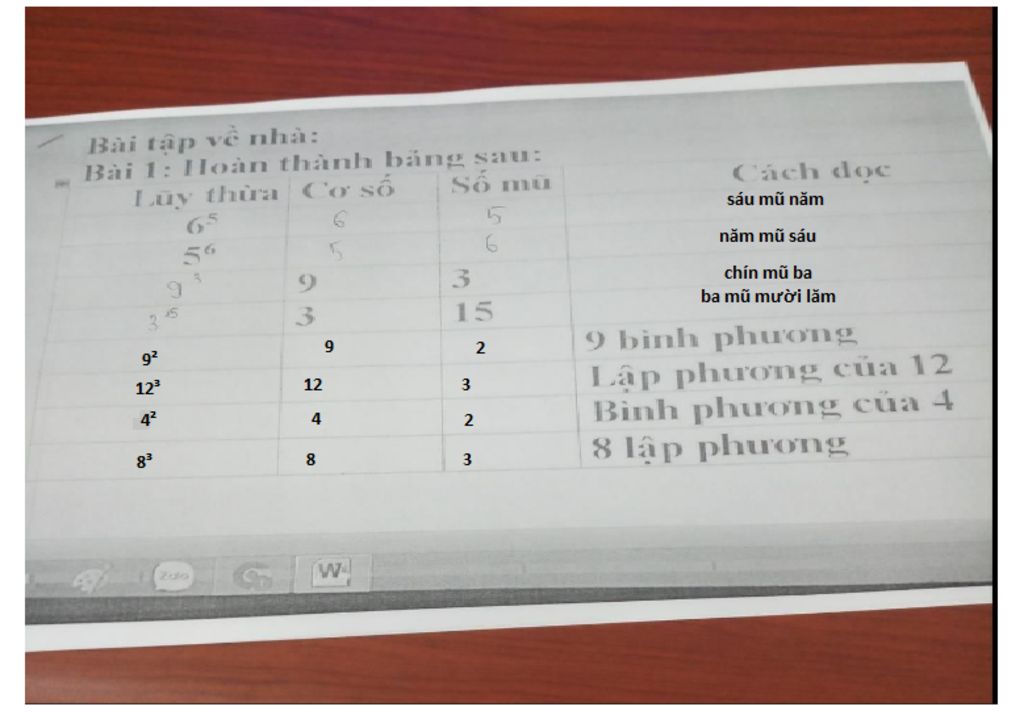 Bài tập về nhà:
Bài 1: Hoàn thành bảng sau:
Lũy thừa Cơ số Số mũ Cách đọc
6⁵ 6 5 sáu mũ năm
5⁶ 5 6 năm mũ sáu
9³ 9 3 chín mũ ba
3¹⁵ 3 15 ba mũ mười lăm
9² 9 2 9 bình phương
12³ 12 3 Lập phương của 12
4² 4 2 Bình phương của 4
8³ 8 3 8 lập phương
Zalo W